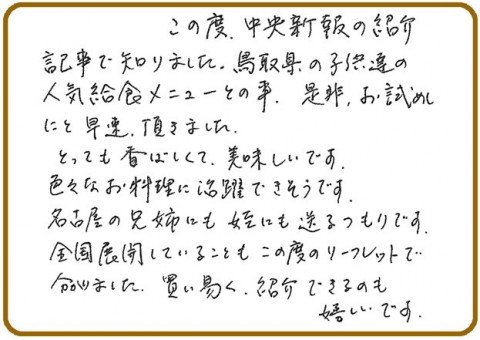 この度、中央新報の紹介
記事で知りました。鳥取県の子供達の
人気給食メニューとの事、是非、お試めし
にと早速、頂きました。
とっても香ばしくて、美味しいです。
色々なお料理に活躍できそうです。
名古屋の兄姉にも姪にも送るつもりです。
全国展開していることもこの度のリーフレットで
分りました。買い易く、紹介できるのも
嬉しいです。